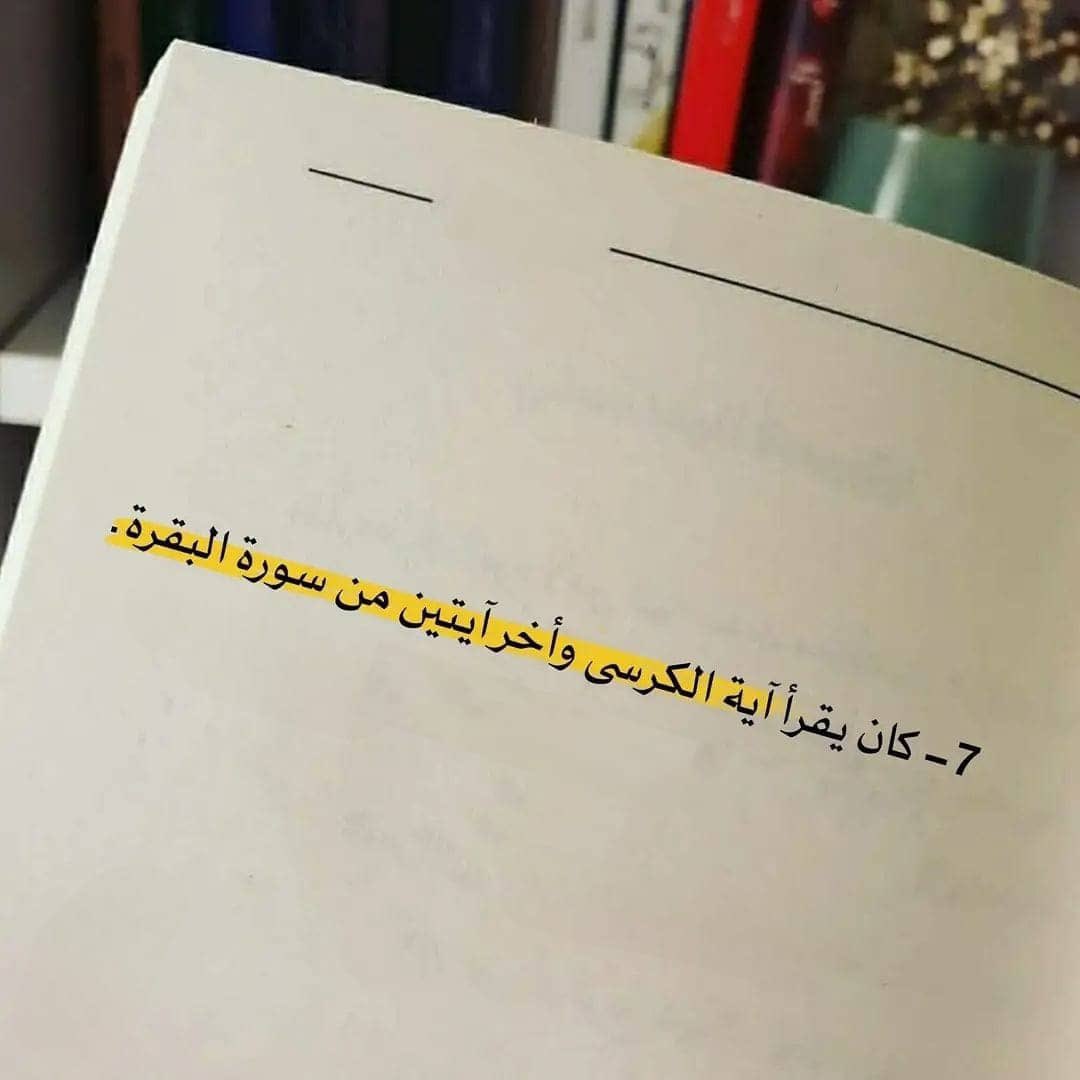 7 - كان يقرأ آية الكرسى وأخر آيتين من سورة البقرة.